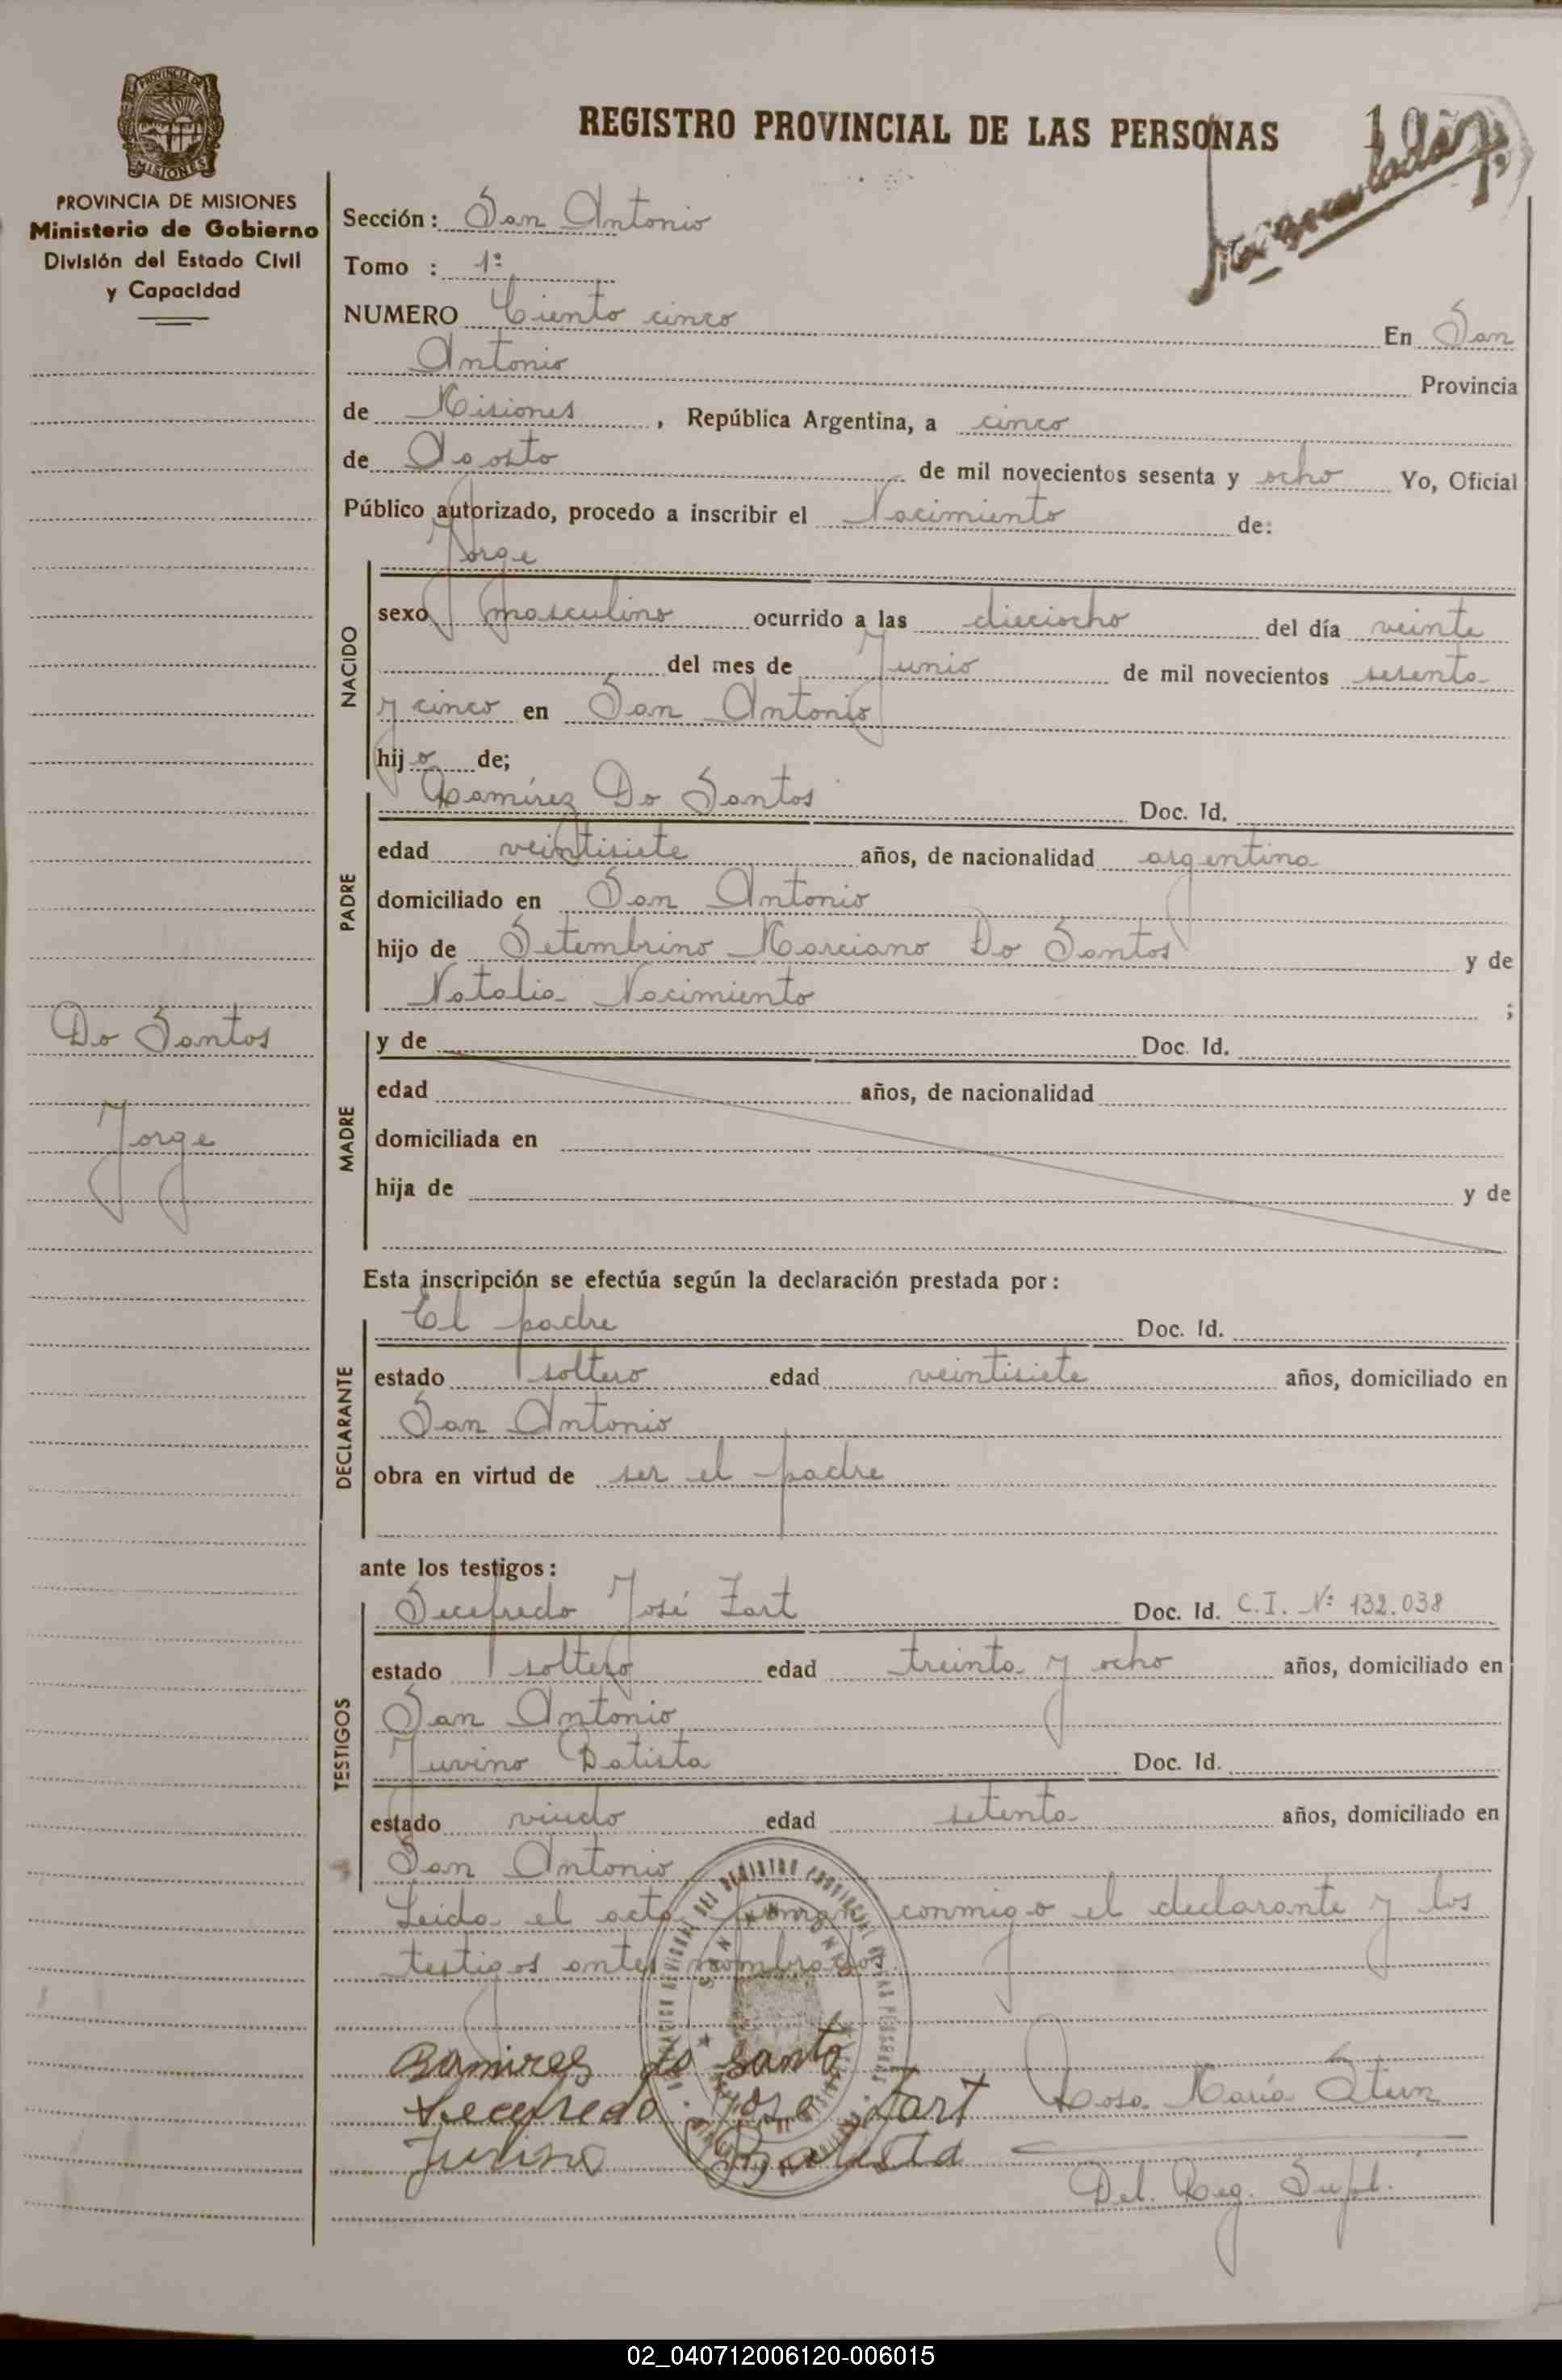 PROVINCIA DE
MISIONES
PROVINCIA DE MISIONES
Ministerio de Gobierno
División del Estado Civil
y Capacidad
REGISTRO PROVINCIAL DE LAS PERSONAS
Sección: San Antonio
Tomo : 1º
NUMERO Ciento cinco En San
Antonio Provincia
de Misiones, República Argentina, a cinco
de Agosto de mil novecientos sesenta y ocho Yo, Oficial
Público autorizado, procedo a inscribir el Nacimiento de:
NACIDO
Jorge
sexo masculino ocurrido a las dieciocho del día veinte
del mes de Junio de mil novecientos sesenta
y cinco en San Antonio
hijo de;
PADRE
Ramírez Do Santos Doc. Id.
edad veintisiete años, de nacionalidad argentina
domiciliado en San Antonio
hijo de Setembrino Marciano Do Santos y de
Natalia Nacimiento ;
Do Santos
Jorge
MADRE
y de Doc. Id.
edad años, de nacionalidad
domiciliada en
hija de y de
Esta inscripción se efectúa según la declaración prestada por:
DECLARANTE
El padre Doc. Id.
estado soltero edad veintisiete años, domiciliado en
San Antonio
obra en virtud de ser el padre
ante los testigos:
TESTIGOS
Secefredo José Fart Doc. Id. C.I. Nº 132.038
estado soltero edad treinta y ocho años, domiciliado en
San Antonio
Juvino Batista Doc. Id.
estado viudo edad setenta años, domiciliado en
San Antonio
Leida el acta firman conmigo el declarante y los
testigos antes nombrados.
Ramires do santo
Secefredo Jose Fart Rosa María
Juvino Batista
Del. Reg. Supl.
02_040712006120-006015